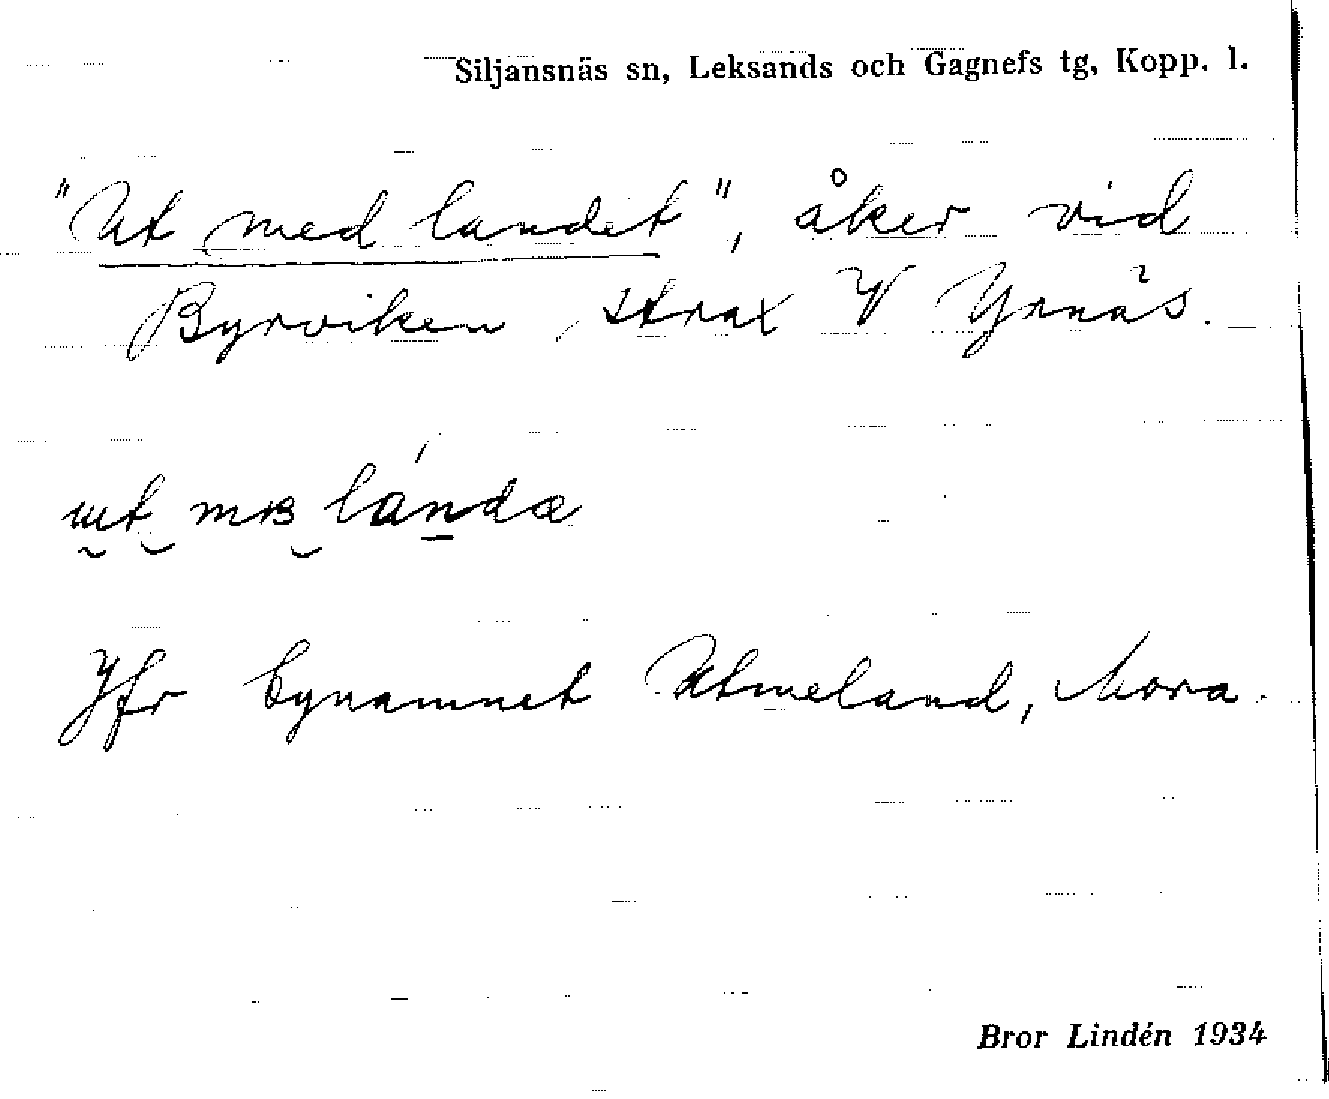 Siljansnäs sn, Leksands och Gagnefs tg, Kopp. l.
"Ut med landet", åker vid
Byrviken, strax V Yrnäs.
ɯt mʙ lándæ
Jfr bynamnet Utmeland, Mora.
Bror Lindén 1934